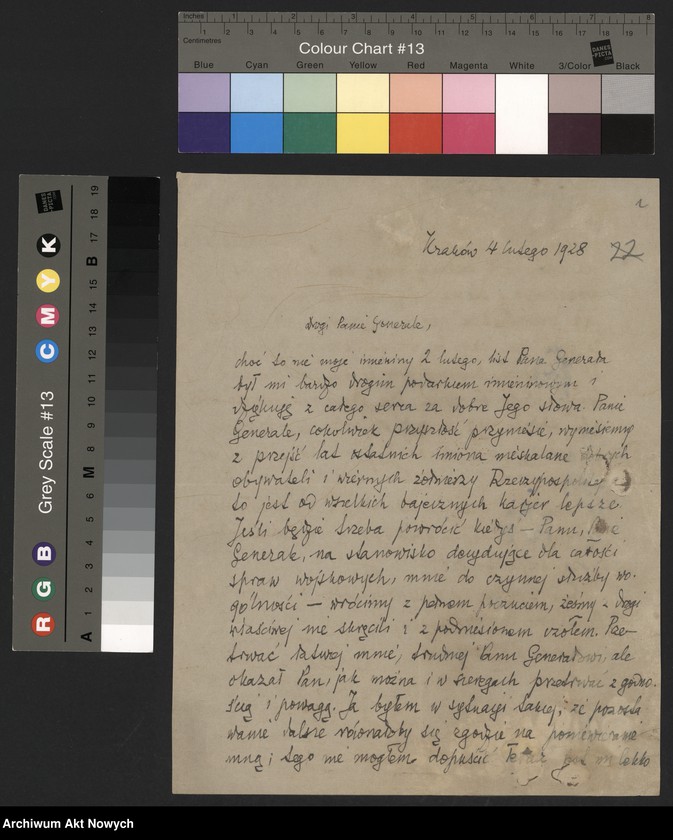 Inches 1 2 3 4 5 6 7 8
Centimetres 1 2 3 4 5 6 7 8 9 10 11 12 13 14 15 16 17 18 19
Colour Chart #13
DANES PICTA .COM
Blue Cyan Green Yellow Red Magenta White 3/Color Black
Grey Scale #13
DANES PICTA .COM
R G B C M Y K
A 1 2 3 4 5 6 M 8 9 10 11 12 13 14 15 B 17 18 19
Kraków 4 lutego 1928 22
Drogi Panie Generale,
choć to nie moje imieniny 2 lutego, list Pana Generała
był mi bardzo drogim podarkiem imieninowym i
dziękuję z całego serca za dobre Jego słowa. Panie
Generale, cokolwiek przyszłość przyniesie, wyniesiemy
z przejść lat ostatnich imiona nieskalane
obywateli i wiernych żołnierzy
to jest od wszelkich bajecznych karjer lepsze.
Jeśli będzie trzeba powrócić kiedyś — Panu,
Generale, na stanowisko decydujące dla całości
spraw wojskowych, mnie do czynnej służby wo-
gólności — wrócimy z pełnem poczuciem, żeśmy z drogi
właściwej nie skręcili i z podniesionem czołem. Prze-
trwać łatwiej mnie, trudniej Panu Generałowi, ale
okazał Pan, jak można i w szeregach przetrwać z godno-
ścią i powagą. Ja byłem w sytuacji takiej, że pozosta
wanie dalsze równałoby się zgodzie na poniewieranie
mną; tego nie mogłem dopuścić
Archiwum Akt Nowych